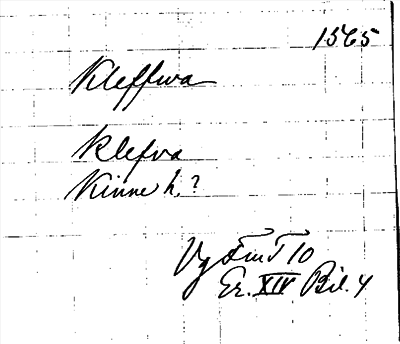 1565
Kleffwa
Klefva
Kinne h.?
Vg FmT 10
Er. XIV Bil. 4